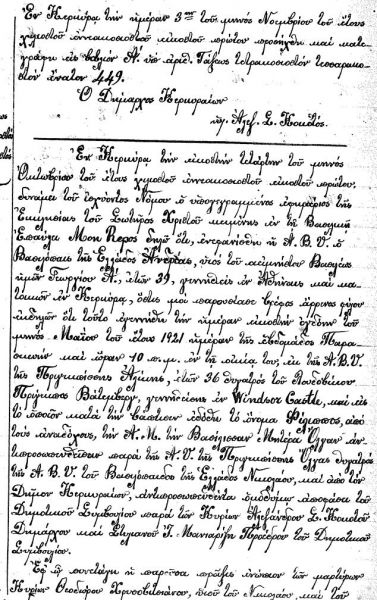 Ἐν Κερκύρᾳ τὴν ἡμέραν 3ην τοῦ μηνὸς Νοεμβρίου τοῦ ἔτους
χιλιοστοῦ ἐννεακοσιοστοῦ εἰκοστοῦ πρώτου προσήχθη καὶ κατε-
γράφη εἰς Α. ὑπ' ἀριθ. τάξεως τετρακοσιοστὸν τεσσαρακο-
στὸν ἔνατον 449.
Ὁ Δήμαρχος Κερκυραίων
ὑπ. Ἀλεξ. Σ. Κοκοτός.
Ἐν Κερκύρᾳ τὴν εἰκοστὴν τετάρτην τοῦ μηνὸς
Ὀκτωβρίου τοῦ ἔτους χιλιοστοῦ ἐννεακοσιοστοῦ εἰκοστοῦ πρώτου,
δυνάμει τοῦ ἰσχύοντος Νόμου ὁ ὑπογεγραμμένος ἐφημέριος τῆς
Ἐκκλησίας τοῦ Σωτῆρος Χριστοῦ κειμένης ἐν τῇ Βασιλικῇ
Ἐπαύλει Mon Repos δηλῶ ὅτι, ἐνεφανίσθη ἡ Α.Β.Υ. ὁ
Βασιλόπαις τῆς Ἑλλάδος Ἀνδρέας, υἱὸς τοῦ ἀειμνήστου Βασιλέως
ἡμῶν Γεωργίου Α', ἐτῶν 39, γεννηθεὶς ἐν Ἀθήναις καὶ κα-
τοικῶν ἐν Κερκύρᾳ, ὅστις μοι παρουσίασε βρέφος ἄρρενος γένους
ὅτι τοῦτο ἐγεννήθη τὴν ἡμέραν εἰκοστὴν ὀγδόην τοῦ
μηνὸς Μαΐου τοῦ ἔτους 1921 ἡμέραν τῆς ἑβδομάδος Παρα-
σκευὴν καὶ ὥραν 10 π.μ. ἐν τῇ οἰκίᾳ του, ἐκ τῆς Α.Β.Υ.
τῆς Πριγκηπίσσης Ἀλίκης, ἐτῶν 36 θυγατρὸς τοῦ Λουδοβίκου
Πρίγκηπος Βάτεμβεργ, γεννηθείσης ἐν Windsor Castle, καὶ εἰς
τὸ ὁποῖον κατὰ τὴν βάπτισιν ἐδόθη τὸ ὄνομα Φίλιππος, ἀπὸ
τοὺς ἀναδόχους, τὴν Α.Μ. τὴν Βασίλισσαν Μητέρα Ὄλγαν ἀν-
τιπροσωπευθεῖσαν παρὰ τῆς Α.Υ. τῆς Πριγκηπίσσης Ὄλγας θυγατρὸς
τῆς Α.Β.Υ. τοῦ Βασιλόπαιδος τῆς Ἑλλάδος Νικολάου, καὶ ἀπὸ τὸν
Δῆμον Κερκυραίων, ἀντιπροσωπευθέντα ὁμοθύμῳ ἀποφάσει τοῦ
Δημοτικοῦ Συμβουλίου παρὰ τοῦ Κυρίου Ἀλεξάνδρου Σ. Κοκοτοῦ
Δημάρχου καὶ Στυλιανοῦ Ι. Μανιαρίζη Προέδρου τοῦ Δημοτικοῦ
Συμβουλίου.
Ἐφ' ᾧ συνετάγη ἡ παροῦσα πρᾶξις ἐνώπιον τῶν μαρτύρων
Κυρίων Θεοδώρου Χρυσοβιτσιάνου, υἱοῦ τοῦ Νικολάου καὶ τοῦ